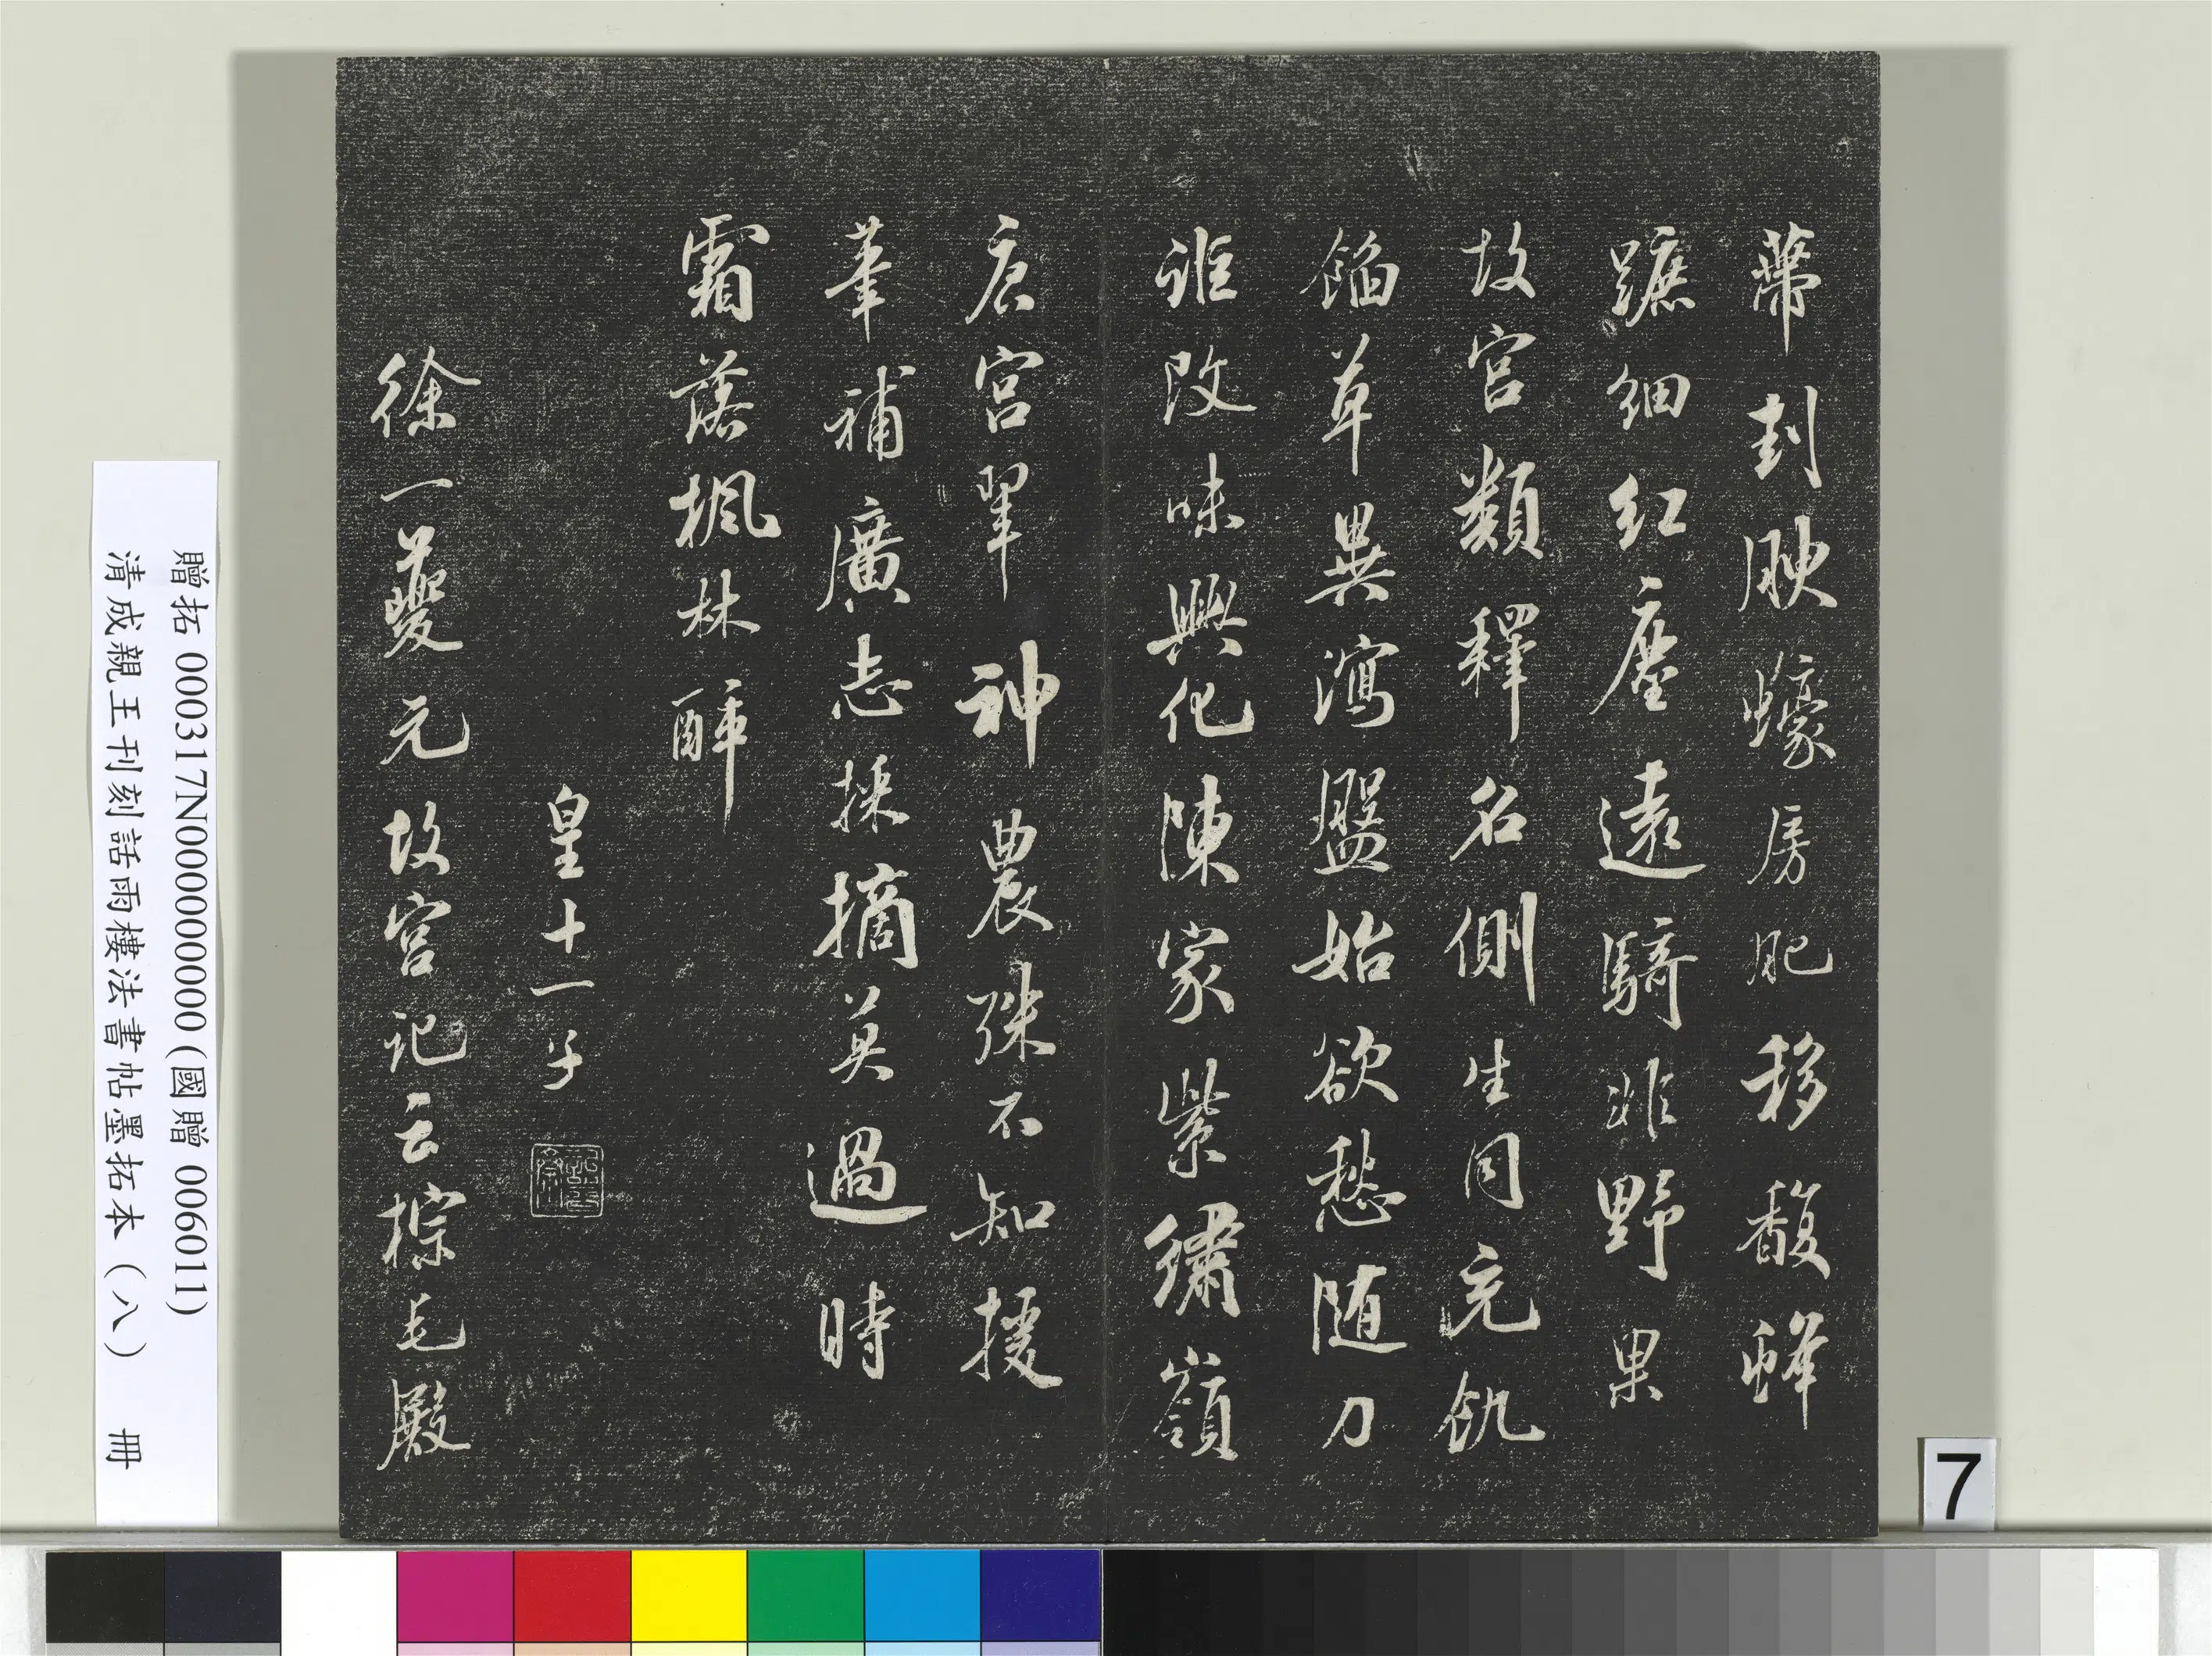 蒂封腴蠔房肥移馥蜂
蹠細紅塵遠騎非野果
故宮類釋名側生同充飢
餡草異瀉盤始欲愁随刀
誰改味興化陳家紫繡嶺
唐宮翠神農殊不知援
筆補廣志採摘莫過時
霜落楓林醉
皇十一子
徐一夔元故宮記云棕毛殿
贈拓 000317N000000000 (國贈 006011)
清成親王刊刻詒雨樓法書帖墨拓本（八） 冊
7